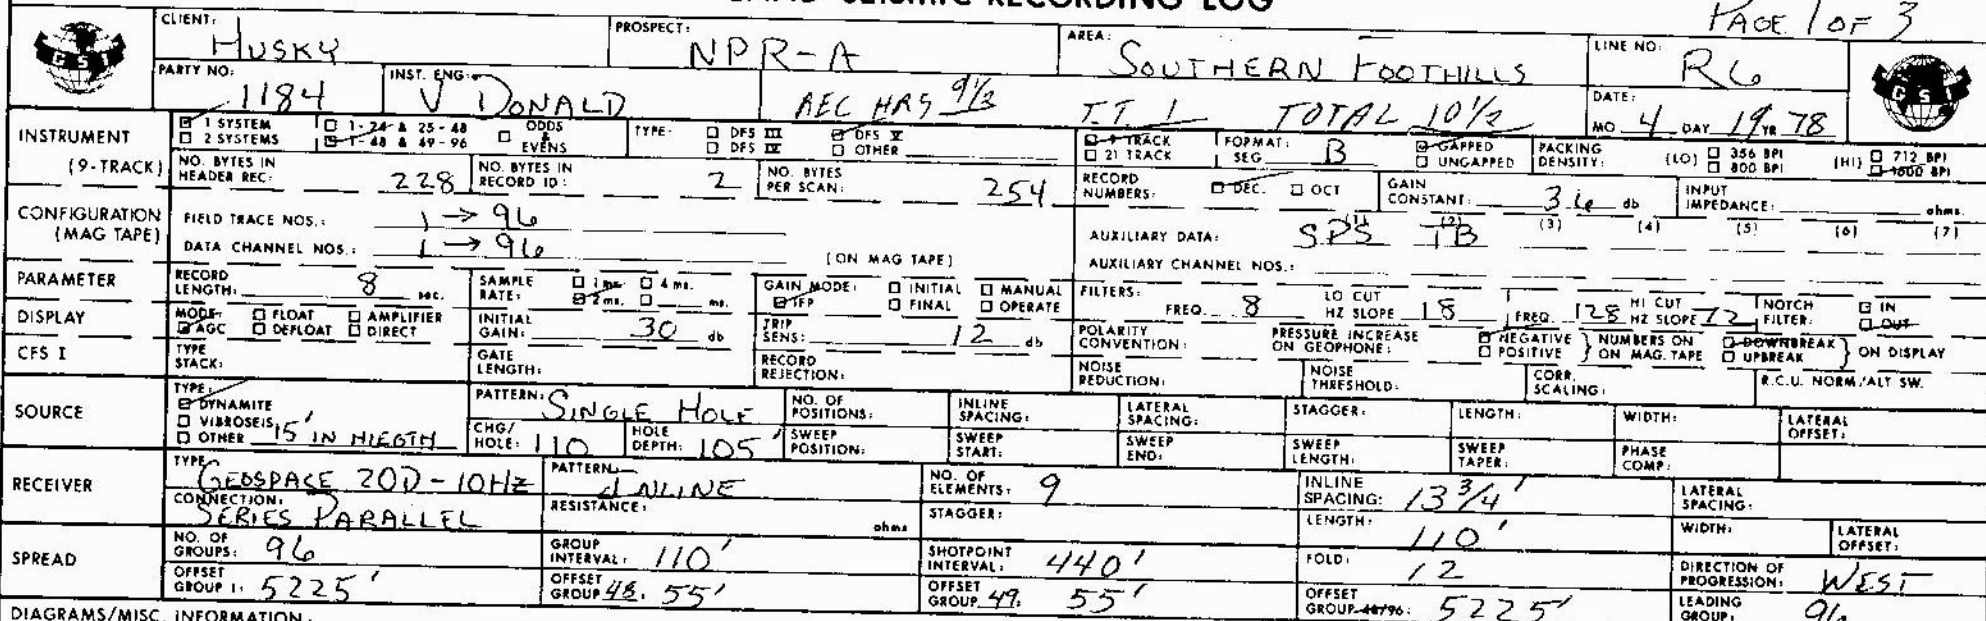 SEISMIC RECORDING LOG
PAGE 1 OF 3
GSI
CLIENT: HUSKY PROSPECT: NPR-A AREA: SOUTHERN FOOTHILLS LINE NO: R6
GSI
PARTY NO: 1184 INST. ENG: J DONALD REC HRS 9 1/2 T.T 1 TOTAL 10 1/2 DATE: MO 4 DAY 19 YR 78
INSTRUMENT (9-TRACK) 1 SYSTEM 1-24 & 25-48 ODDS & EVENS TYPE: DFS III DFS V 9 TRACK FORMAT: SEG B GAPPED PACKING DENSITY: (LO) 356 BPI (HI) 712 BPI
2 SYSTEMS 1-48 & 49-96 DFS IV OTHER 21 TRACK UNGAPPED 800 BPI 1600 BPI
NO. BYTES IN HEADER REC: 228 NO. BYTES IN RECORD ID: 2 NO. BYTES PER SCAN: 254 RECORD NUMBERS: DEC. OCT GAIN CONSTANT: 36 db INPUT IMPEDANCE: ohms.
CONFIGURATION (MAG TAPE) FIELD TRACE NOS.: 1 → 96 AUXILIARY DATA: SPS (1) TB (2) (3) (4) (5) (6) (7)
DATA CHANNEL NOS.: 1 → 96 (ON MAG TAPE) AUXILIARY CHANNEL NOS.:
PARAMETER RECORD LENGTH: 8 sec. SAMPLE RATE: 1 ms. 4 ms. 2 ms. ms. GAIN MODE: INITIAL MANUAL IFP FINAL OPERATE FILTERS: FREQ. 8 LO CUT HZ SLOPE 18 FREQ. 128 HI CUT HZ SLOPE 72 NOTCH FILTER: IN OUT
DISPLAY MODE: FLOAT AMPLIFIER AGC DEFLOAT DIRECT INITIAL GAIN: 30 db TRIP SENS: 12 db POLARITY CONVENTION: PRESSURE INCREASE ON GEOPHONE: NEGATIVE POSITIVE } NUMBERS ON ON MAG. TAPE DOWNBREAK UPBREAK } ON DISPLAY
CFS I TYPE STACK: GATE LENGTH: RECORD REJECTION: NOISE REDUCTION: NOISE THRESHOLD: CORR. SCALING: R.C.U. NORM./ALT SW.
SOURCE TYPE: DYNAMITE PATTERN: SINGLE HOLE NO. OF POSITIONS: INLINE SPACING: LATERAL SPACING: STAGGER: LENGTH: WIDTH: LATERAL OFFSET:
VIBROSEIS OTHER 15' IN HIEGTH CHG/HOLE: 110 HOLE DEPTH: 105' SWEEP POSITION: SWEEP START: SWEEP END: SWEEP LENGTH: SWEEP TAPER: PHASE COMP:
RECEIVER TYPE: GEOSPACE 20D-10HZ PATTERN: INLINE NO. OF ELEMENTS: 9 INLINE SPACING: 13 3/4' LATERAL SPACING:
CONNECTION: SERIES PARALLEL RESISTANCE: ohms STAGGER: LENGTH: 110' WIDTH: LATERAL OFFSET:
SPREAD NO. OF GROUPS: 96 GROUP INTERVAL: 110' SHOTPOINT INTERVAL: 440' FOLD: 12 DIRECTION OF PROGRESSION: WEST
OFFSET GROUP 1: 5225' OFFSET GROUP 48: 55' OFFSET GROUP 49: 55' OFFSET GROUP 48/96: 5225' LEADING GROUP: 96
DIAGRAMS/MISC. INFORMATION: